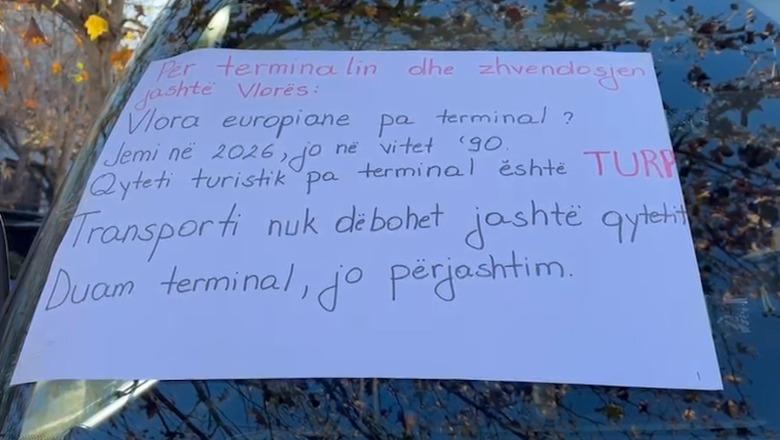 Për terminalin dhe zhvendosjen
jashtë Vlorës:
Vlora europiane pa terminal ?
Jemi në 2026, jo në vitet '90.
Qyteti turistik pa terminal është TURP
Transporti nuk dëbohet jashtë qytetit
Duam terminal, jo përjashtim.